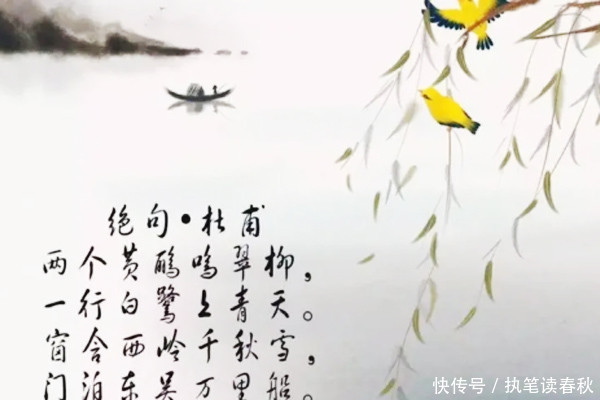 绝句•杜甫
两个黄鹂鸣翠柳，
一行白鹭上青天。
窗含西岭千秋雪，
门泊东吴万里船。
快传号 / 执笔读春秋